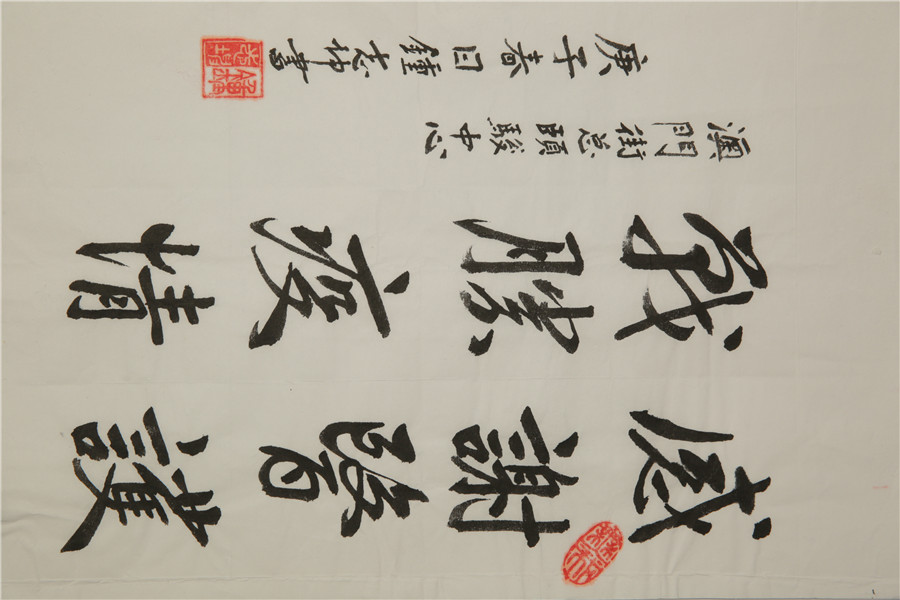 感謝醫護
戰勝疫情
澳門街总頤駿中心
庚子春日鐘志坤書